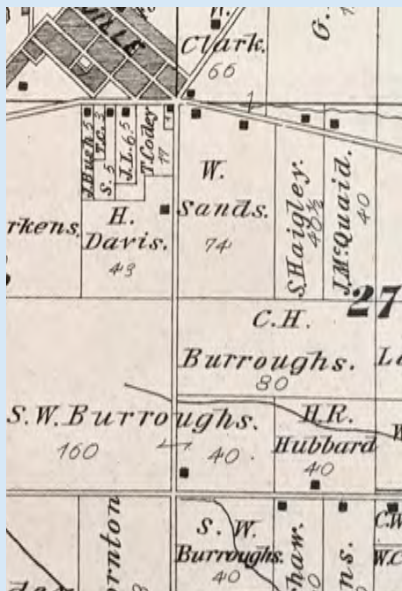 VILLE
Clark.
66
G.
J. Bush 5
T.C. 3
S. 5
J.L. 6.5
T. Codey
17
W.
Sands.
74
S. Haigley.
40½
J. McQuaid.
40
rkens.
H.
Davis.
43
27
C.H.
Burroughs.
80
S.W. Burroughs.
160
40
H.R.
Hubbard
40
rnton
S. W.
Burroughs.
40
haw.
ns.
C.W
W.C